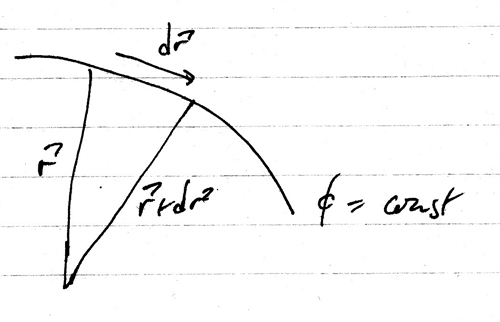 dr⃗
r⃗
r⃗+dr⃗
ϕ = const